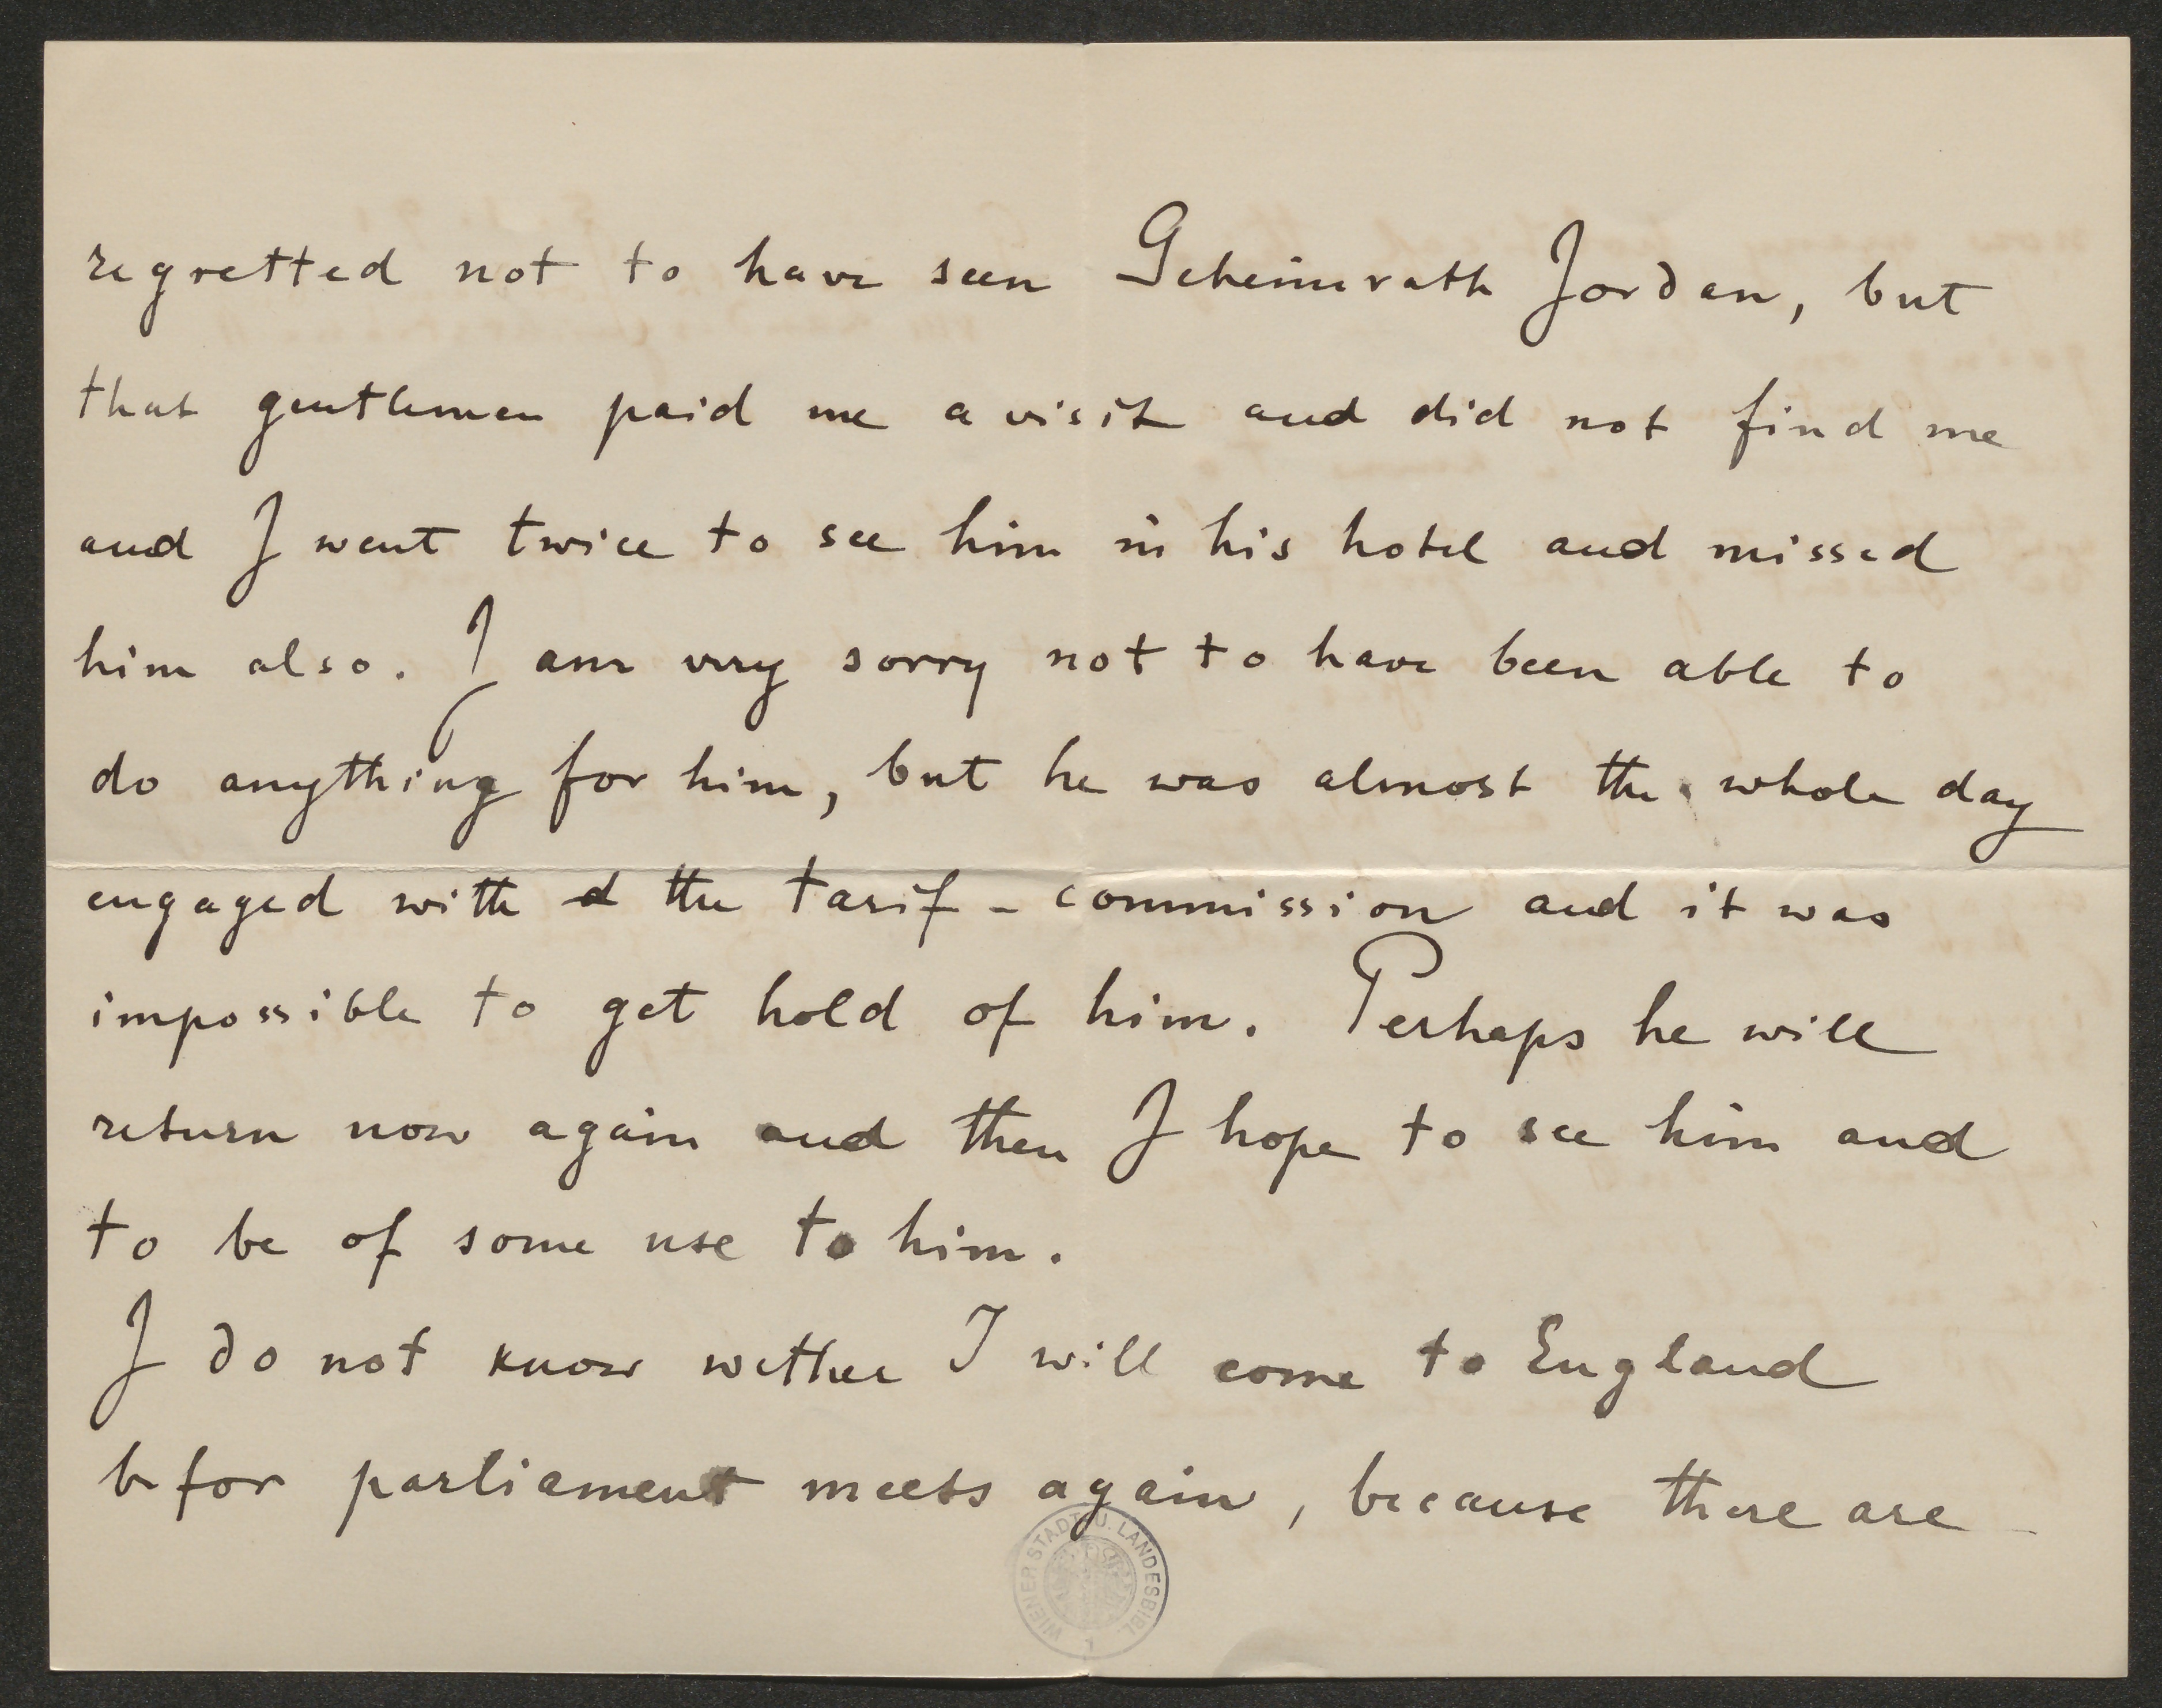 regretted not to have seen Geheimrath Jordan, but
that gentlemen paid me a visit and did not find me
and I went twice to see him in his hotel and missed
him also. I am very sorry not to have been able to
do anything for him, but he was almost the whole day
engaged with d the tarif-commission and it was
impossible to get hold of him. Perhaps he will
return now again and then I hope to see him and
to be of some use to him.
I do not know wether I will come to England
befor parliament meets again, because there are
WIENER STADT- U. LANDESBIBL.